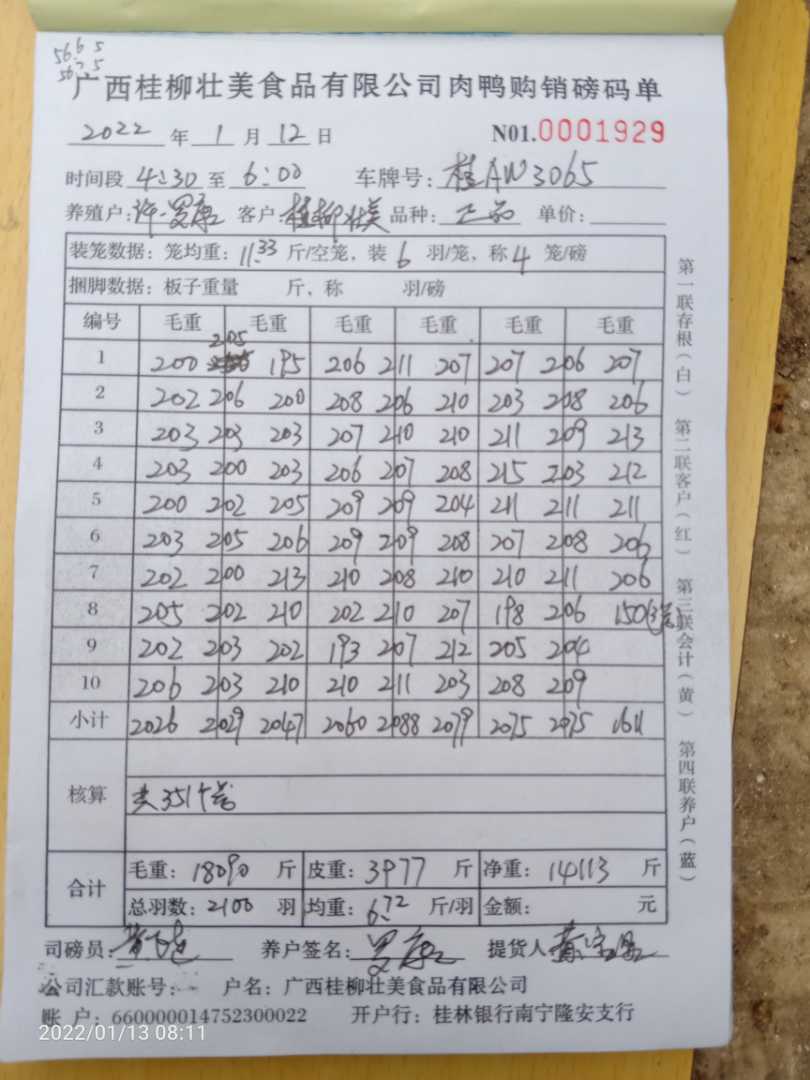 56.6 5
56.7 5
广西桂柳壮美食品有限公司肉鸭购销磅码单
2022 年 1 月 12 日 N01.0001929
时间段 4:30 至 6:00 车牌号: 桂AW3065
养殖户: 许·罗康 客户: 桂柳壮美 品种: 正品 单价:
装笼数据: 笼均重: 11.33 斤/空笼, 装 6 羽/笼, 称 4 笼/磅
捆脚数据: 板子重量 斤, 称 羽/磅
编号 毛重 毛重 毛重 毛重 毛重 毛重
1 200 205 195 206 211 207 207 206 207
2 202 206 200 208 206 210 203 208 206
3 203 203 203 207 210 210 211 209 213
4 203 200 203 206 207 208 215 203 212
5 200 202 205 209 209 204 211 211 211
6 203 205 206 209 209 208 207 208 206
7 202 200 213 210 208 210 210 211 206
8 205 202 210 202 210 207 198 206 150(3笼)
9 202 203 202 193 207 212 205 204
10 206 203 210 210 211 203 208 209
小计 2026 2029 2047 2060 2088 2079 2075 2075 1611
核算 共351个笼
合计 毛重: 18090 斤 皮重: 3977 斤 净重: 14113 斤
总羽数: 2100 羽 均重: 6.72 斤/羽 金额: 元
司磅员: 养户签名: 罗康 提货人
公司汇款账号: 户名: 广西桂柳壮美食品有限公司
账 户: 660000014752300022 开户行: 桂林银行南宁隆安支行
2022/01/13 08:11
第一联存根(白) 第二联客户(红) 第三联会计(黄) 第四联养户(蓝)